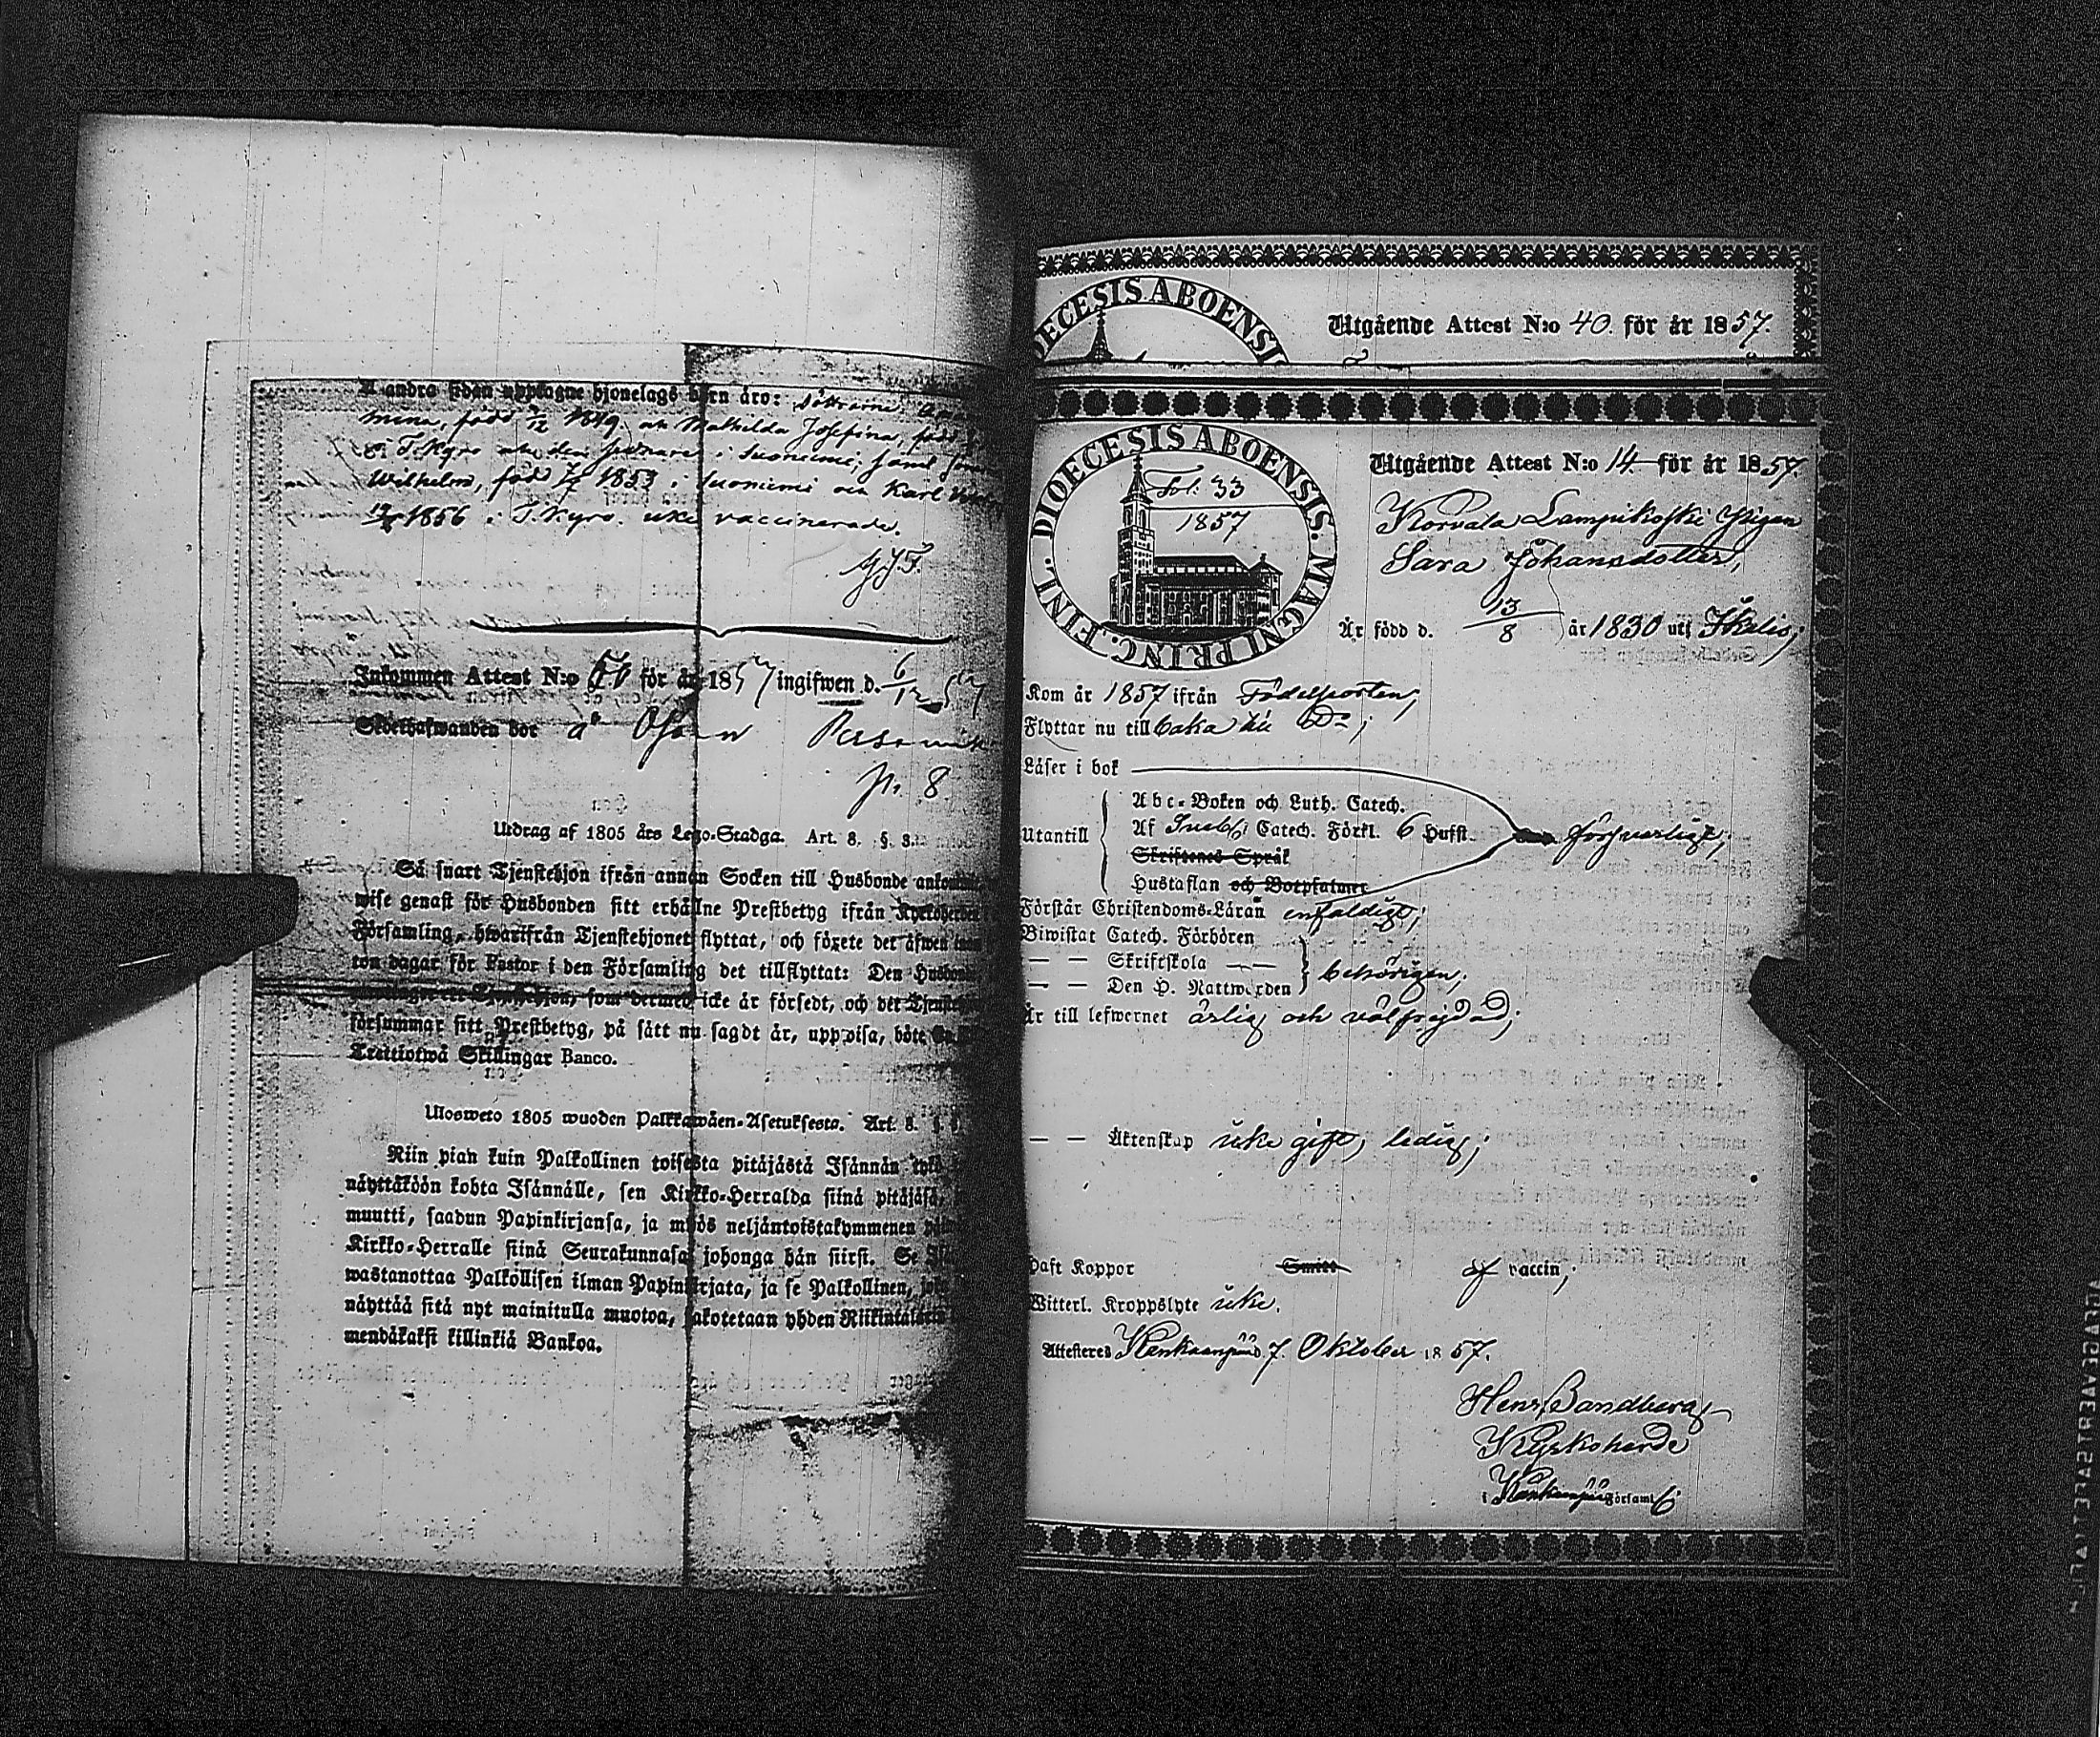 å andra sidan upptagne hjonelags barn äro: döttrarne
mina, född 9/12 1849 och Mathilda Josefina, född
i T.Kyro och den senare i Suoniemi, samt
Wilhelm, född 1853 i Suoniemi och Karl
1856 i T.Kyro. icke vaccinerade.
Inkommen Attest N:o för år 1857 ingifwen d. 6/12 57
Sedelhafwanden bor å
N. 8
Utdrag af 1805 års Lego-Stadga. Art. 8. §. 3.
Så snart Tjenstehjon ifrån annan Socken till Husbonde
wise genast för Husbonden sitt erhållne Prestbetyg ifrån
Församling, hwarifrån Tjenstehjonet flyttat, och förete det äfwen
ton dagar för Pastor i den Församling det tillflyttat: Den
som dermed icke är försedt, och det
försummar sitt Prestbetyg, på sätt nu sagdt är, uppwisa, böte
Trettiotwå Skillingar Banco.
Ulosweto 1805 wuoden Palkkawäen-Asetuksesta. Art. 8. §.
Niin pian kuin Palkollinen toisesta pitäjästä Isännän
näyttäköön kohta Isännälle, sen Kirkko-Herralda siinä pitäjäsä,
muutti, saadun Papinkirjansa, ja myös neljäntoistakymmenen
Kirkko-Herralle siinä Seurakunnasa johonga hän siirsi. Se
wastanottaa Palkollisen ilman Papinkirjata, ja se Palkollinen,
näyttää sitä nyt mainitulla muotoa, sakotetaan yhden
mendäkaksi killinkiä Bankoa.
DIOECESIS ABOENSI
Utgående Attest N:o 40. för år 1857.
DIOECESIS ABOENSIS. MAGNI PRINC. FINL.
Fol. 33
1857
Utgående Attest N:o 14 för år 1857.
Korvala Lampikoski Pigan
Sara Johansdotter,
Är född d. 13/8 år 1830 uti Ikalis;
Kom år 1857 ifrån Födelseorten,
Flyttar nu tillbaka till Do;
Läser i bok
Utantill
Abc-Boken och Luth. Catech.
Af Svebel. Catech. Förkl. 6 Hufst.
Skriftenes Språk
Hustaflan och Botpsalmer
försvarligt;
Förstår Christendoms-Läran enfaldigt;
Biwistat Catech. Förhören
— — Skriftskola — —
— — Den H. Nattwarden
behörigen;
Är till lefwernet ärlig och välfrejdad;
— — Äktenskap icke gift, ledig;
Haft Koppor Smitt af vaccin;
Witterl. Kroppslyte icke.
Attesteres Kankaanpää d. 7. Oktober 1857.
Henr. Sandberg
Kyrkoherde
i Kankaanpää Församl.